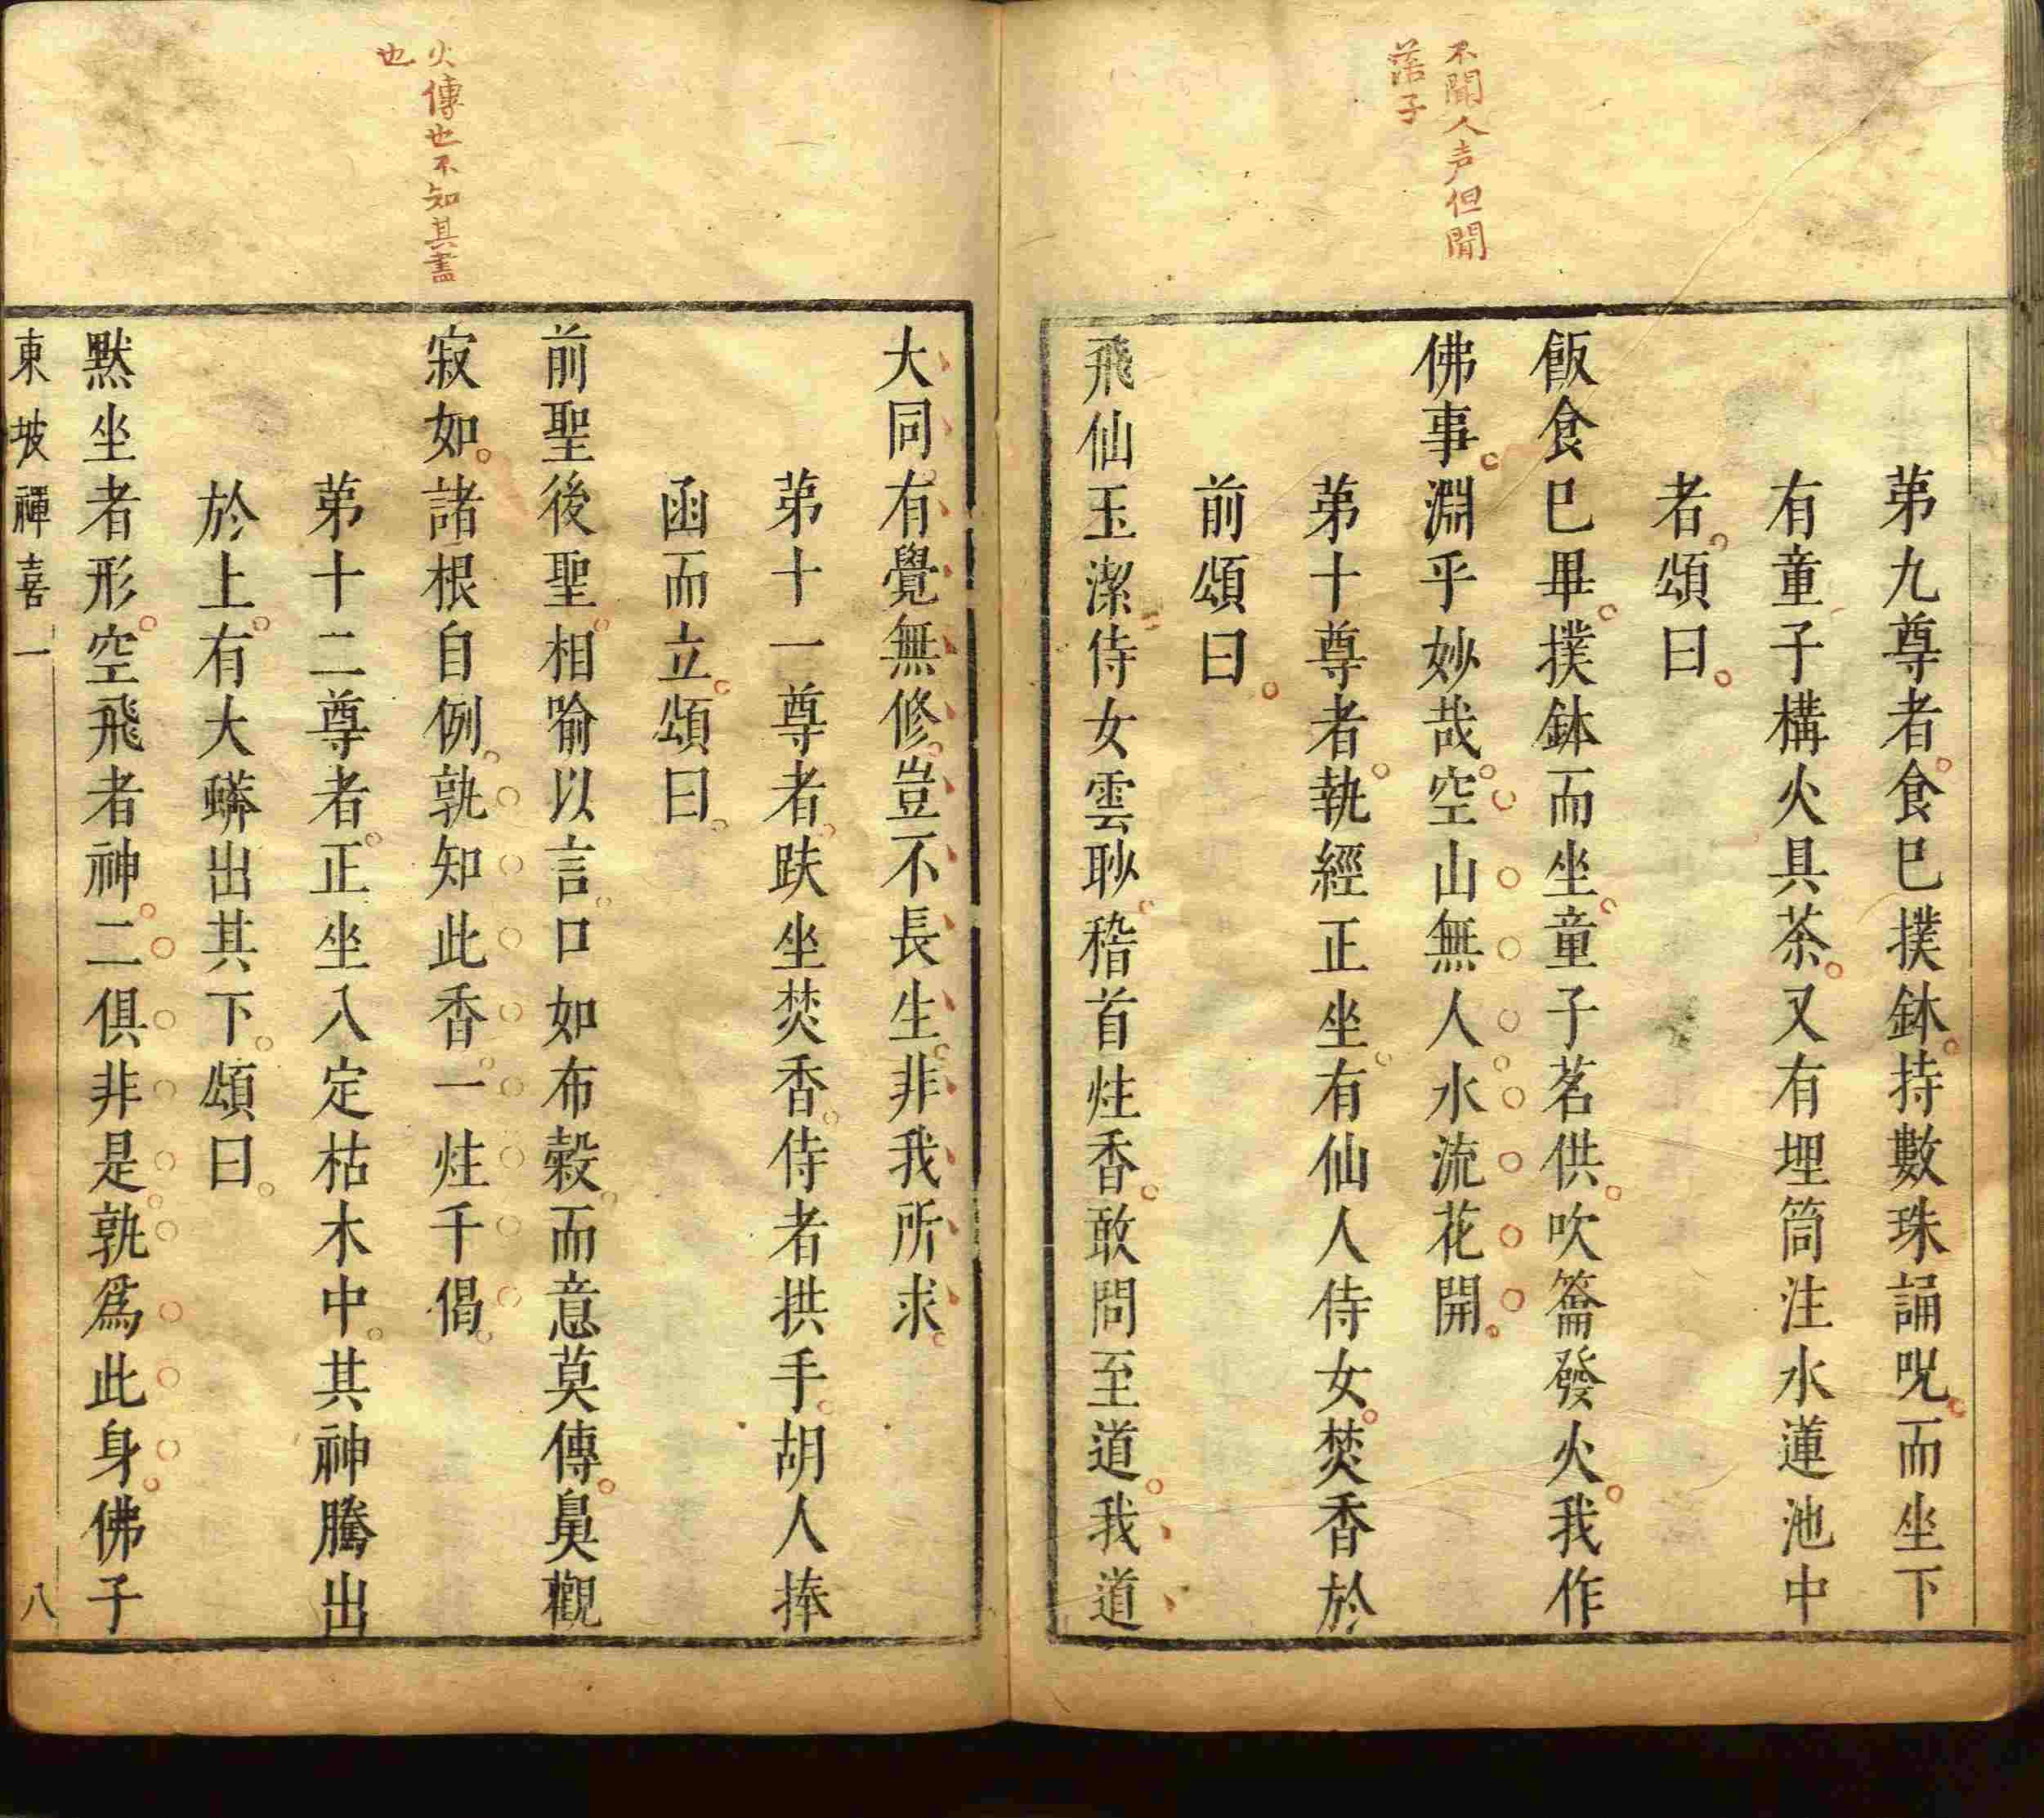 不聞人声但聞
落子
第九尊者食已撲鉢持數珠誦呪而坐下
有童子構火具茶又有埋筒注水蓮池中
者頌曰
飯食已畢撲鉢而坐童子茗供吹籥發火我作
佛事淵乎妙哉空山無人水流花開
第十尊者執經正坐有仙人侍女焚香於
前頌曰
飛仙玉潔侍女雲眇稽首炷香敢問至道我道
火傳也不知其盡
也
大同有覺無修豈不長生非我所求
第十一尊者趺坐焚香侍者拱手胡人捧
函而立頌曰
前聖後聖相喻以言口如布穀而意莫傳鼻觀
寂如諸根自例孰知此香一炷千偈
第十二尊者正坐入定枯木中其神騰出
於上有大蟒出其下頌曰
默坐者形空飛者神二俱非是孰爲此身佛子
東坡禪喜一 八